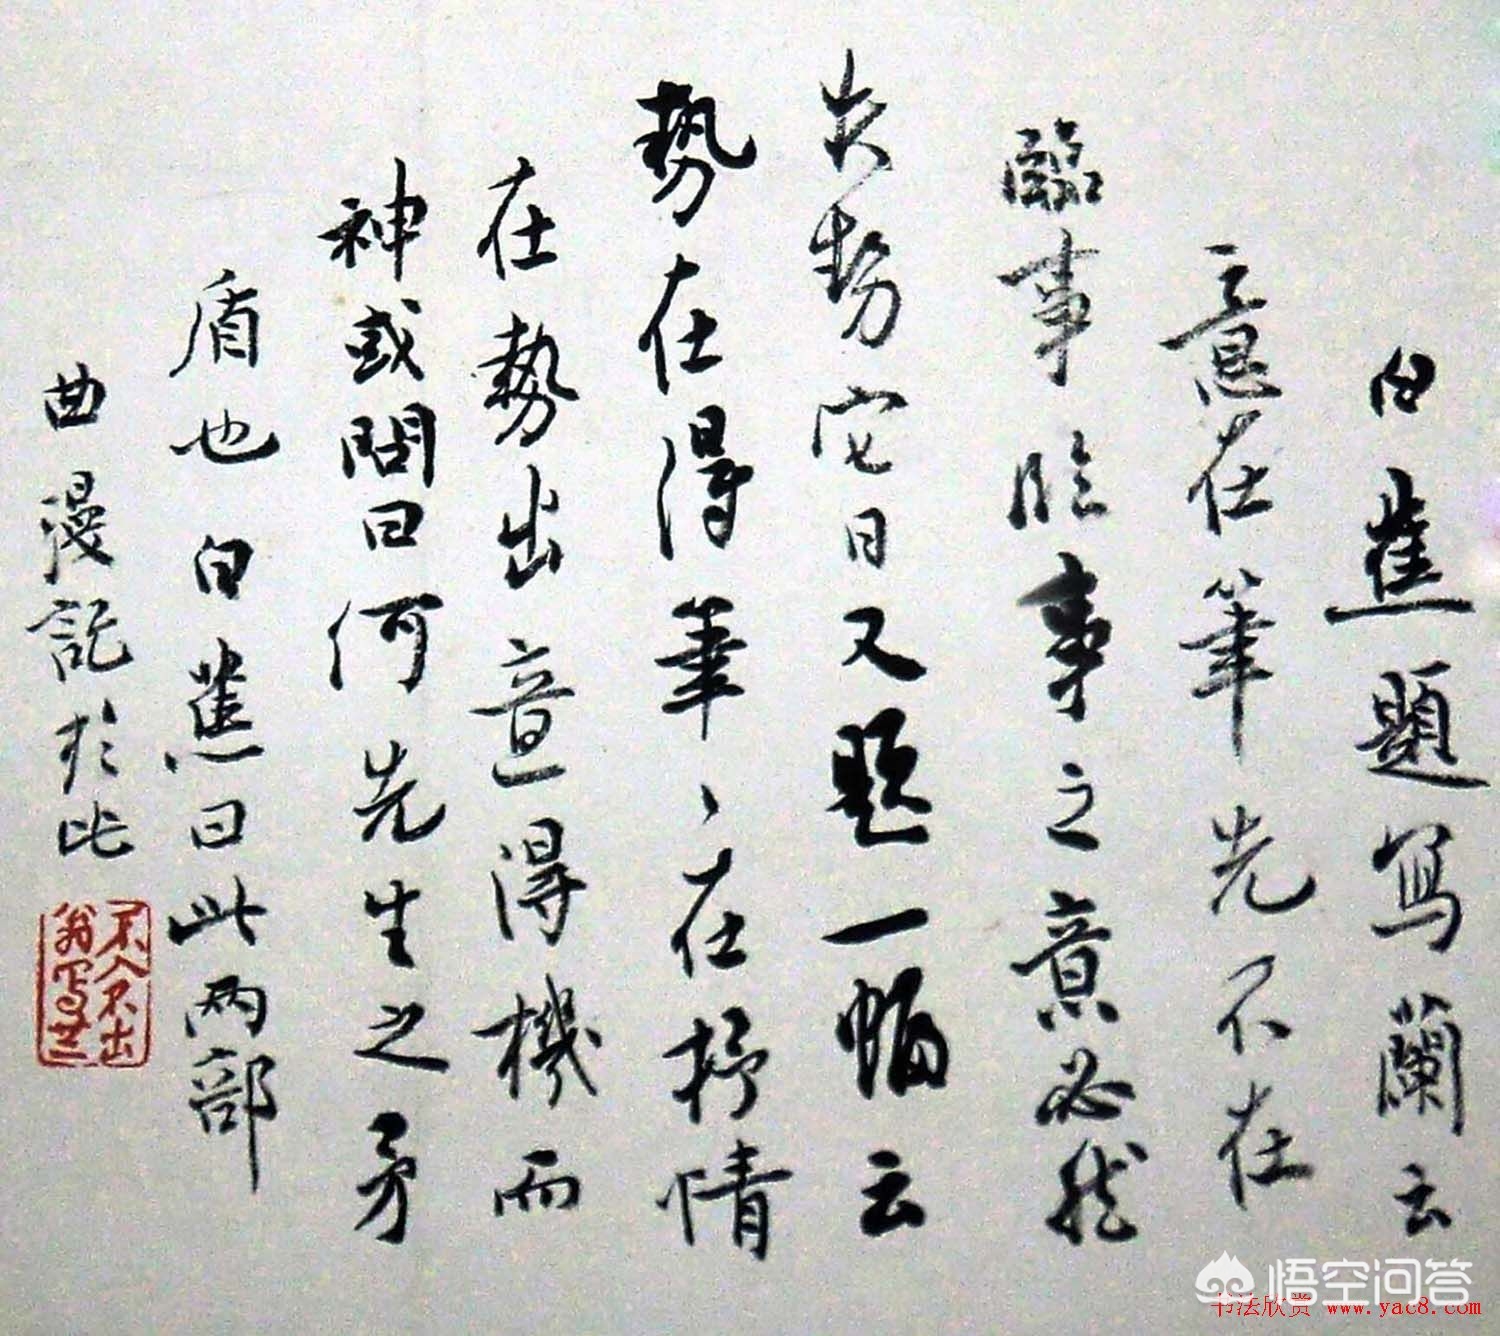 白蕉題寫蘭云
意在筆先不在
臨事臨事之意必然
失勢它日又題一幅云
勢在得筆、在抒情
在勢出意得機而
神或問曰何先生之矛
盾也白蕉曰此兩部
曲漫記於此
不入不出
翁寫蘭
悟空问答
书法欣赏 www.yac8.com